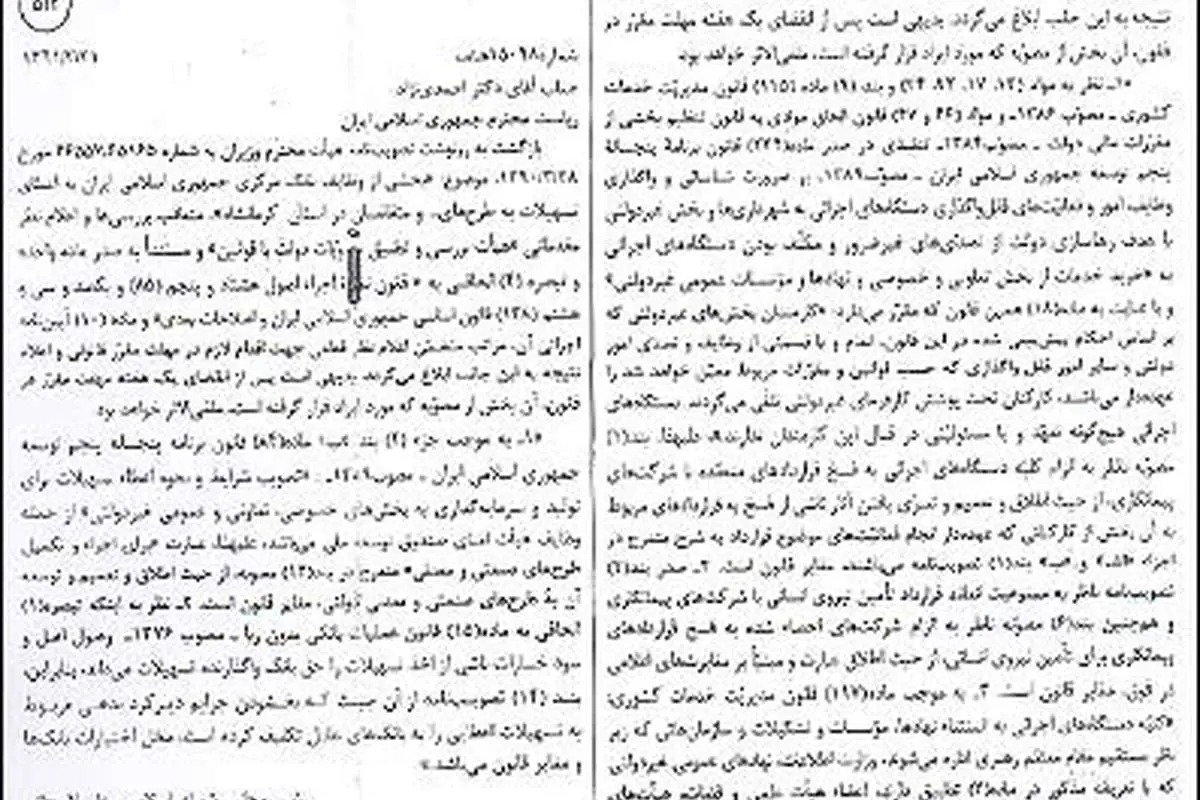 نتیجه به این جانب ابلاغ می‌گردد. بدیهی است پس از انقضای یک هفته مهلت مقرر در
قانون، آن بخش از مصوبه که مورد ایراد قرار گرفته است، ملغی‌الاثر خواهد بود.
«۱ـ نظر به مواد (۱۳، ۱۷، ۲۲، ۲۴) و بند (۹) ماده (۱۱۵) قانون مدیریت خدمات
کشوری ـ مصوب ۱۳۸۶ـ و مواد (۴۴ و ۴۷) قانون الحاق موادی به قانون تنظیم بخشی از
مقررات مالی دولت ـ مصوب۱۳۸۴ـ تنفیذی در صدر ماده(۲۲۴) قانون برنامهٔ پنجسالهٔ
پنجم توسعه جمهوری اسلامی ایران ـ مصوب۱۳۸۹ـ بر ضرورت شناسائی و واگذاری
وظایف، امور و فعالیت‌های قابل‌واگذاری دستگاه‌های اجرائی به شهرداری‌ها و بخش غیردولتی
با هدف رهاسازی دولت از تصدی‌های غیرضرور و مکلف بودن دستگاه‌های اجرائی
به «خرید خدمات از بخش تعاونی و خصوصی و نهادها و مؤسسات عمومی غیردولتی»
و با عنایت به ماده(۱۸) همین قانون که مقرر می‌دارد: «کارمندان بخش‌های غیردولتی که
بر اساس احکام پیش‌بینی شده در این قانون، تمام و یا قسمتی از وظایف و تصدی امور
دولتی و سایر امور قابل واگذاری که حسب قوانین و مقررات مربوط معین خواهد شد را
عهده‌دار می‌باشند، کارکنان تحت پوشش کارفرمای غیردولتی تلقی می‌گردند. دستگاه‌های
اجرائی هیچ‌گونه تعهد و یا مسئولیتی در قبال این کارمندان ندارند»، علیهذا، بند(۱)
مصوبه ناظر به الزام کلیهٔ دستگاه‌های اجرائی به فسخ قراردادهای منعقده با شرکت‌های
پیمانکاری، از حیث اطلاق و تعمیم و تسری یافتن آثار ناشی از فسخ به قراردادهای مربوط
به آن بخش از کارکنانی که عهده‌دار انجام فعالیت‌های موضوع قرارداد به شرح مندرج در
اجزاء «الف» و «ب» بند(۱) تصویب‌نامه می‌باشند، مغایر قانون است. ۲ـ صدر بند(۲)
تصویب‌نامه ناظر به ممنوعیت انعقاد قرارداد تأمین نیروی انسانی با شرکت‌های پیمانکاری
و همچنین بند(۶) مصوبه ناظر به الزام شرکت‌های احصاء شده به فسخ قراردادهای
پیمانکاری برای تأمین نیروی انسانی، از حیث اطلاق عبارت و مبنیاً بر مغایرت‌های اعلامی
در فوق، مغایر قانون است. ۳ـ به موجب ماده(۱۱۷) قانون مدیریت خدمات کشوری،
«کلیه دستگاه‌های اجرائی به استثناء نهادها، مؤسسات و تشکیلات و سازمان‌هائی که زیر
نظر مستقیم مقام معظم رهبری اداره می‌شوند، وزارت اطلاعات، نهادهای عمومی غیردولتی
که با تعریف مذکور در ماده(۳) تطبیق دارند، اعضاء هیأت علمی و قضات، هیأت‌های
شماره۱۵۰۹۸هـ/ب
جناب آقای دکتر احمدی‌نژاد
ریاست محترم جمهوری اسلامی ایران
بازگشت به رونوشت تصویب‌نامه هیأت محترم وزیران به شماره ۴۵۱۶۵/۴۶۵۵۷ مورخ
۱۳۹۰/۳/۲۸، موضوع: «بخشی از وظایف بانک مرکزی جمهوری اسلامی ایران به اعطای
تسهیلات به طرح‌های... و متقاضیان در استان کرمانشاه»، متعاقب بررسی‌ها و اعلام نظر
مقدماتی «هیأت بررسی و تطبیق مصوبات دولت با قوانین» و مستنداً به صدر ماده واحده
و تبصره (۴) الحاقی به «قانون نحوه اجراء اصول هشتاد و پنجم (۸۵) و یکصد و سی و
هشتم (۱۳۸) قانون اساسی جمهوری اسلامی ایران و اصلاحات بعدی» و ماده (۱۰) آیین‌نامه
اجرائی آن، مراتب متضمن اعلام نظر قطعی جهت اقدام لازم در مهلت مقرر قانونی و اعلام
نتیجه به این جانب ابلاغ می‌گردد. بدیهی است پس از انقضای یک هفته مهلت مقرر در
قانون، آن بخش از مصوبه که مورد ایراد قرار گرفته است، ملغی‌الاثر خواهد بود.
«۱ـ به موجب جزء (۴) بند «ب» ماده(۸۴) قانون برنامه پنجساله پنجم توسعه
جمهوری اسلامی ایران ـ مصوب۱۳۸۹ـ : «تصویب شرایط و نحوه اعطاء تسهیلات برای
تولید و سرمایه‌گذاری به بخش‌های خصوصی، تعاونی و عمومی غیردولتی» از جمله
وظایف هیأت امنای صندوق توسعه ملی می‌باشد، علیهذا، عبارت «برای اجراء و تکمیل
طرح‌های صنعتی و معدنی» مندرج در بند(۱۳) مصوبه، از حیث اطلاق و تعمیم و توسعه
آن به طرح‌های صنعتی و معدنی دولتی، مغایر قانون است. ۲ـ نظر به اینکه تبصره(۱)
الحاقی به ماده(۱۵) قانون عملیات بانکی بدون ربا ـ مصوب ۱۳۷۶ـ وصول اصل و
سود خسارات ناشی از اخذ تسهیلات را حق بانک واگذارنده تسهیلات می‌داند، بنابراین،
بند (۱۴) تصویب‌نامه از آن حیث که بخشودن جرایم دیرکرد بدهی مربوط
به تسهیلات اعطایی را به بانک‌های عامل تکلیف کرده است، مخل اختیارات بانک‌ها
و مغایر قانون می‌باشد.»